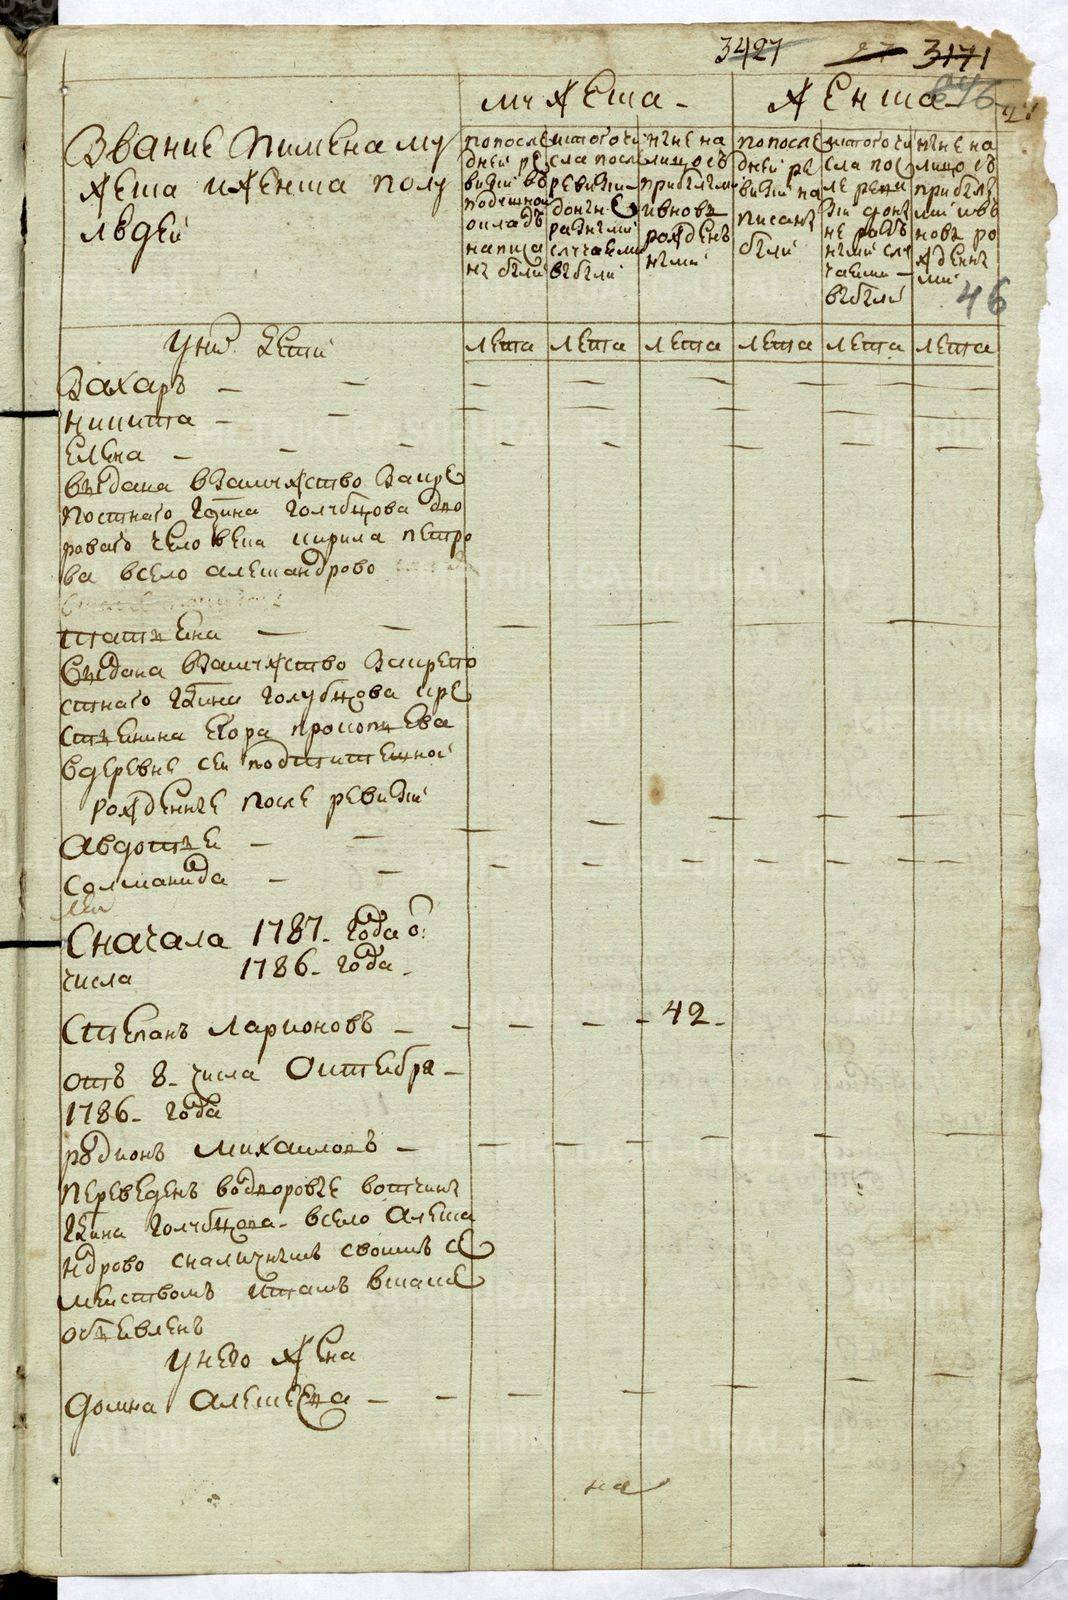 3427 27 3171
46
мужеска - женска -
Звание Поимена му
жеска иженска полу
людей
попосле
дней ре
визий въ
подушной
окладъ
написа
ны были
изтого чи
сла после
ревизии
разными
случаеми
выбыли
ныне на
лицо съ
прибылыми
ивновь
рожден
ными
попосле
дней ре
визий на
писаны
были
изтого чи
сла пос
ле реви
зии доны
не разъ
ными слу
чаями
выбыли
ныне на
лицо съ
прибылы
ми ивъ
новь ро
жденны
ми
46
уних дети
лета лета лета лета лета лета
Захаръ — —
никита — —
Елена — —
выдана взамужство Закре
постнаго Гдина Голубцова дво
роваго человека кирила петро
ва всело александрово
татьяна — —
выдана взамужство Закрепо
стнаго Гдина Голубцова кре
стьянина Егора прокопьева
вдеревне
рожденные после ревизии
Авдотья — —
соломанида — —
Сначала 1787. года о:
числа 1786. года.
Степанъ Ларионовъ — — — — 42.
отъ 8. числа Октебра —
1786. года
родионъ михаиловъ —
переведенъ водворовые вотчины
Гдина Голубцова. всело Алекса
ндрово сналичнымъ своимъ се
мействомъ итамъ вшале
объевленъ
унего жена
домна алексеева —
на